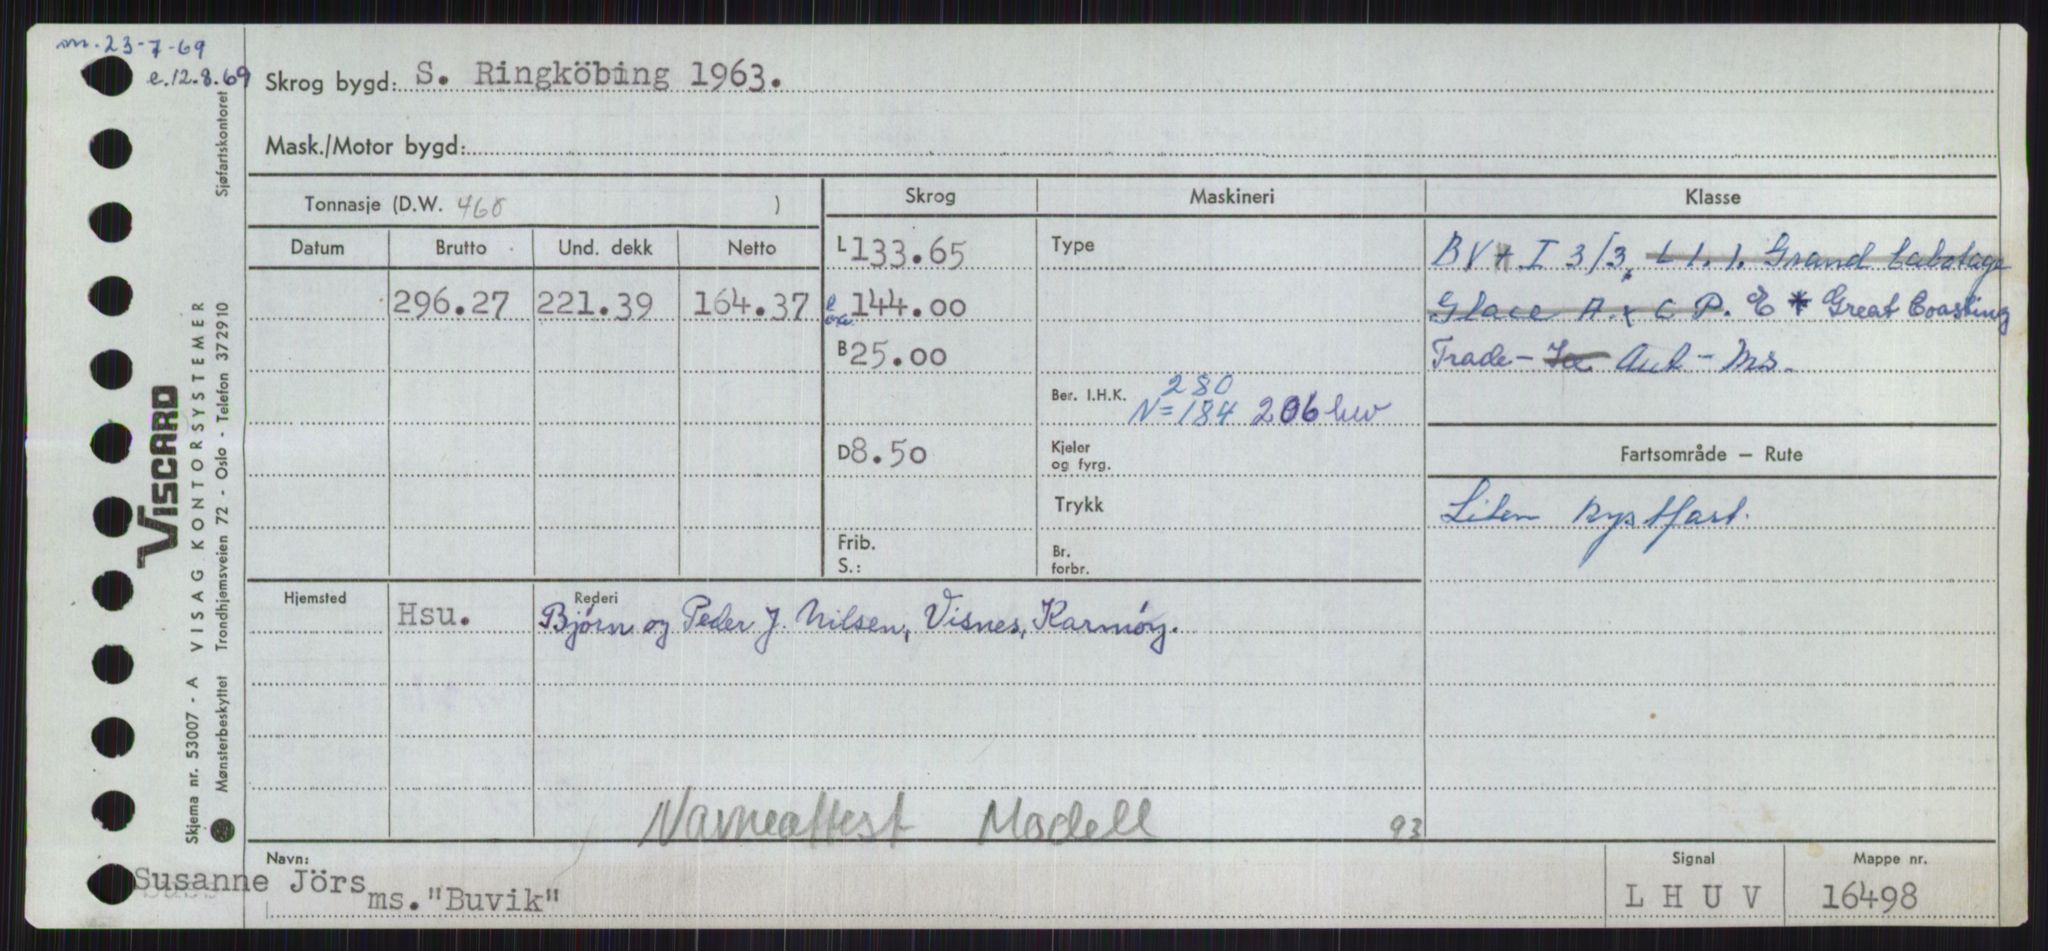 m. 23-7-69
e. 12.8.69
Skrog bygd: S. Ringköbing 1963.
Mask./Motor bygd:
Tonnasje (D.W. 468 )
Skrog Maskineri Klasse
Datum Brutto Und. dekk Netto
296.27 221.39 164.37
L 133.65
144.00
B 25.00
D 8.50
Frib.
S.:
Type
Ber. I.H.K. 280
N=184 206 hw
Kjeler
og fyrg.
Trykk
Br.
forbr.
BV I 3/3, L 1.1. Grand Cabotage
Glace A. x C P. E * Great Coasting
Trade - Ice Aut - Ms.
Fartsområde — Rute
Liten kystfart.
Hjemsted Hsu.
Rederi
Bjørn og Peder J. Nilsen, Visnes, Karmøy.
Navneattest Modell 93
Navn:
Susanne Jörs
ms. "Buvik"
Signal
L H U V
Mappe nr.
16498
Sjøfartskontoret
VISCARD
Skjema nr. 53007 - A VISAG KONTORSYSTEMER
Mønsterbeskyttet Trondhjemsveien 72 - Oslo - Telefon 372910